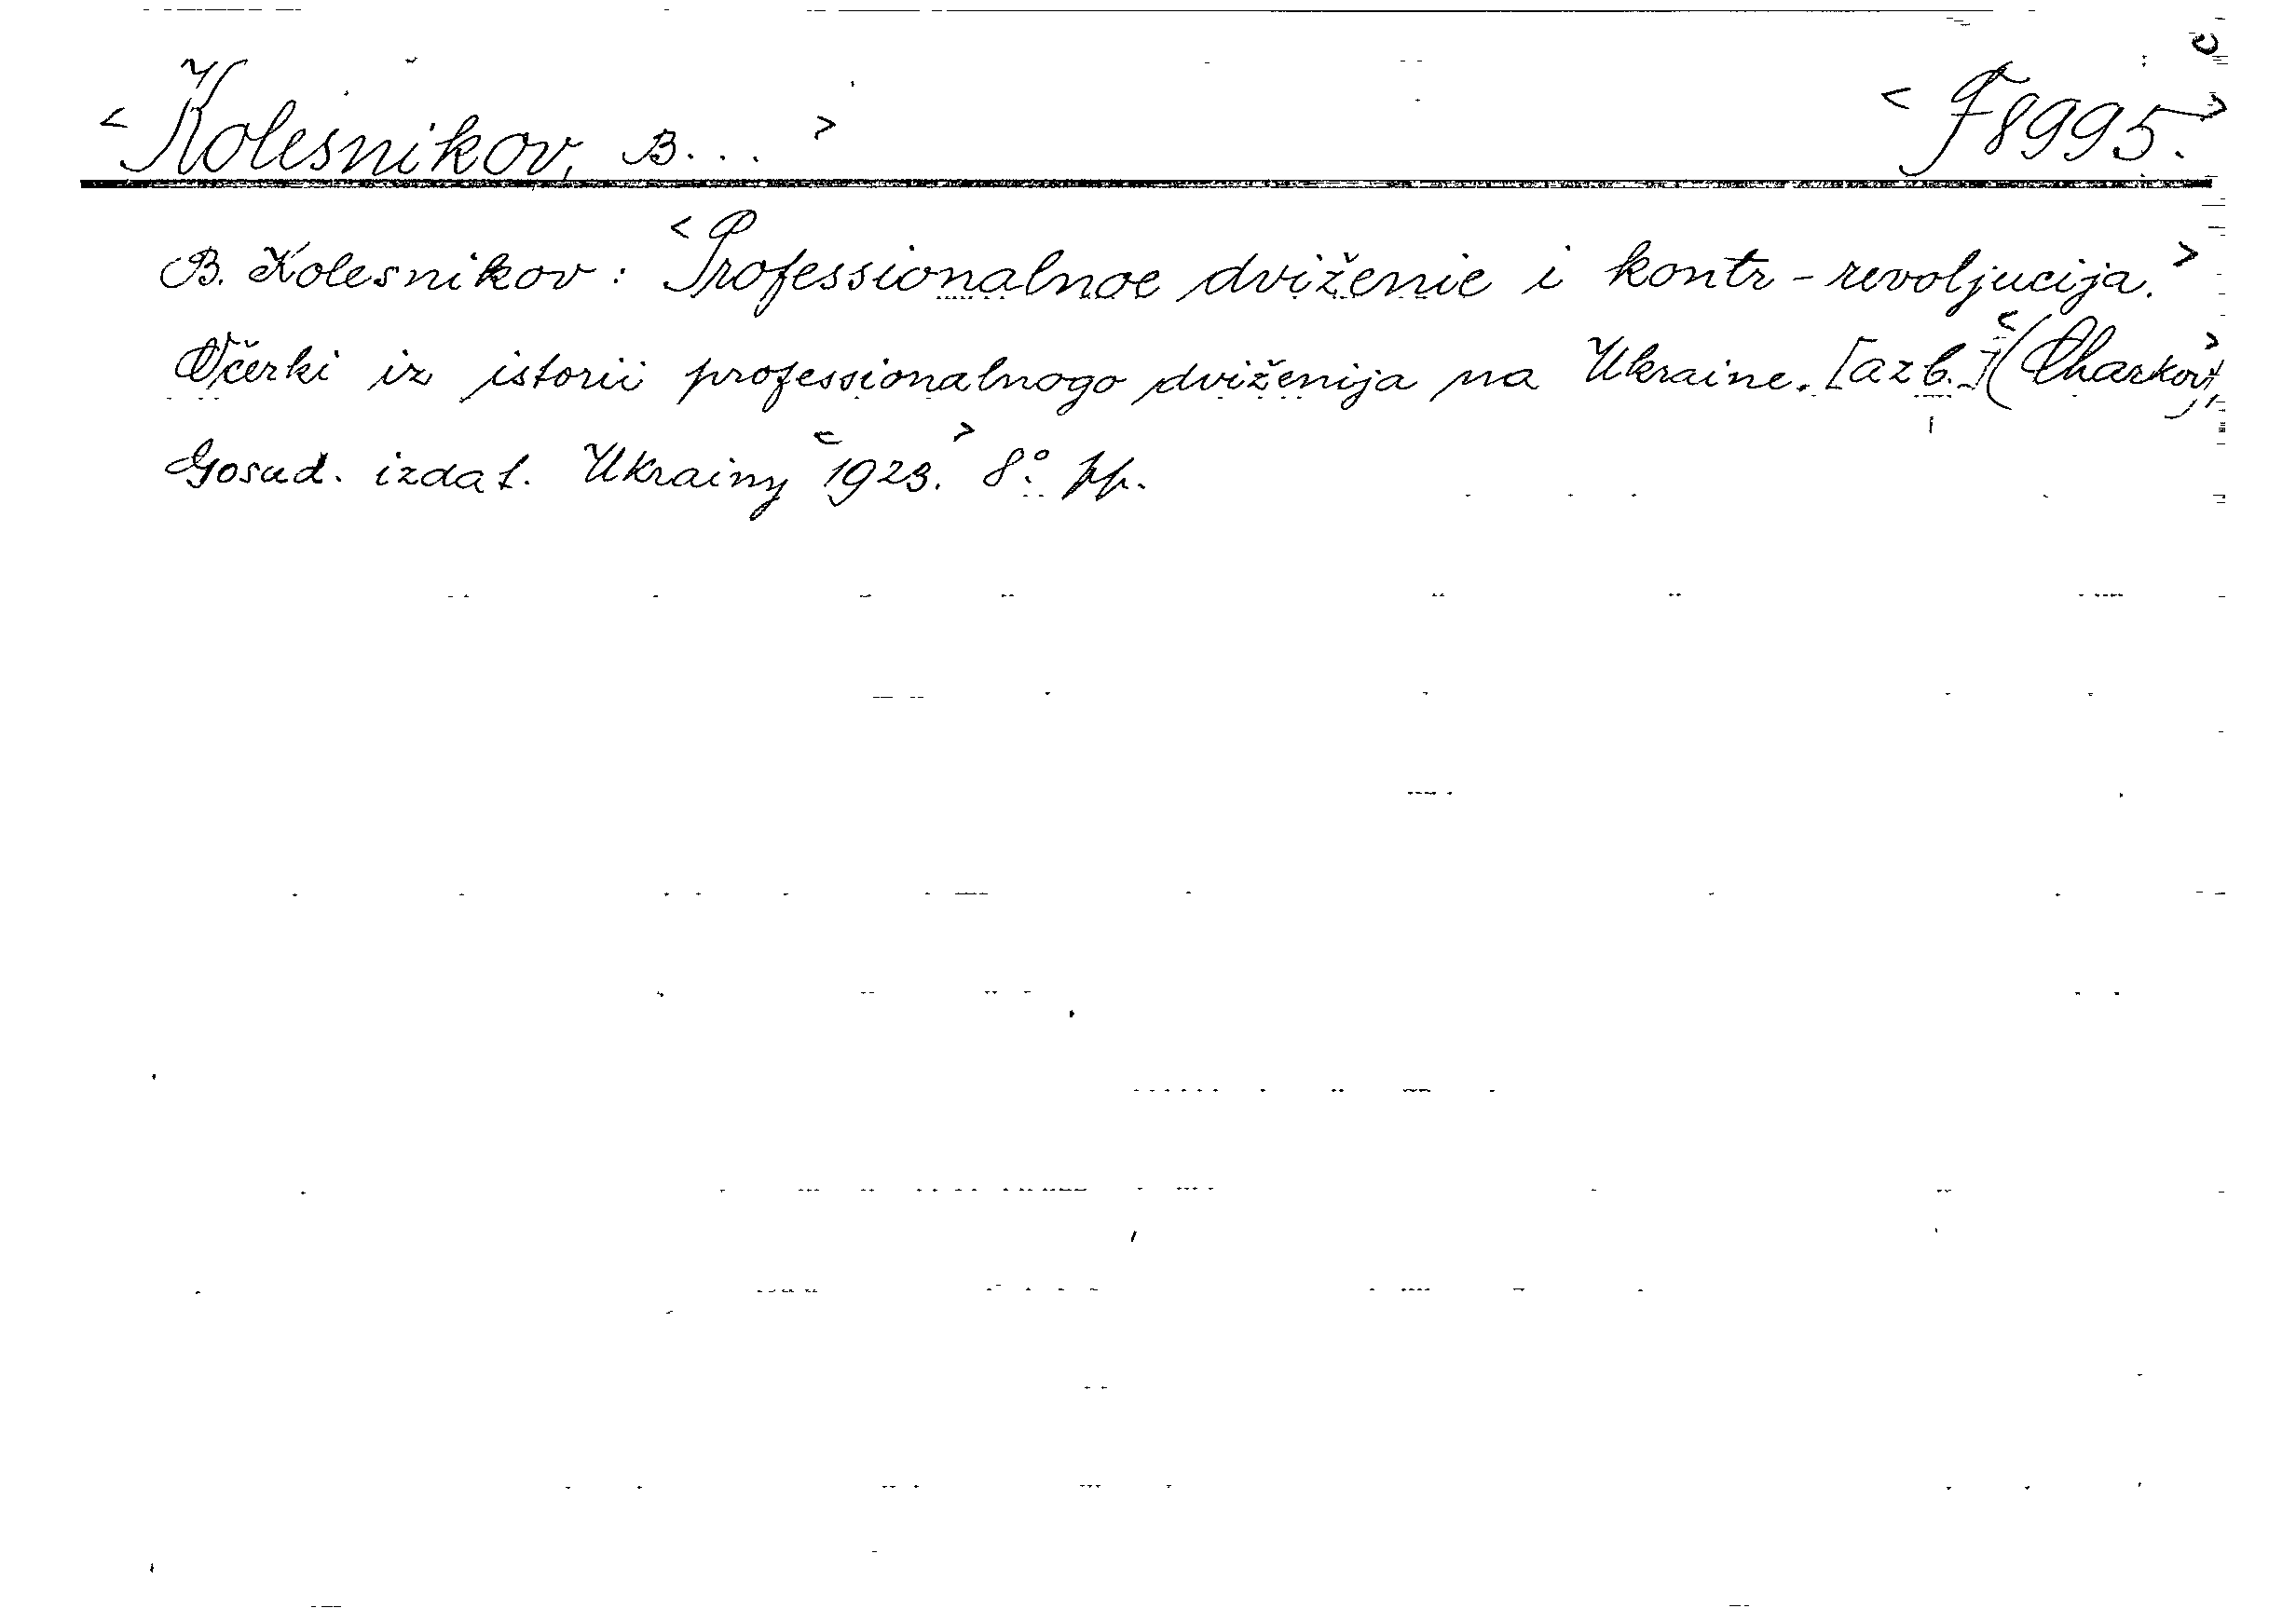 < Kolesnikov, B... > < F 8995. >
B. Kolesnikov: < Professionalnoe dviženie i kontr-revoljucija. >
Očerki iz istorii professionalnogo dviženija na Ukraine. [azb.] < (Charkov), >
Gosud. izdat. Ukrainy < 1923. > 8°. pp.